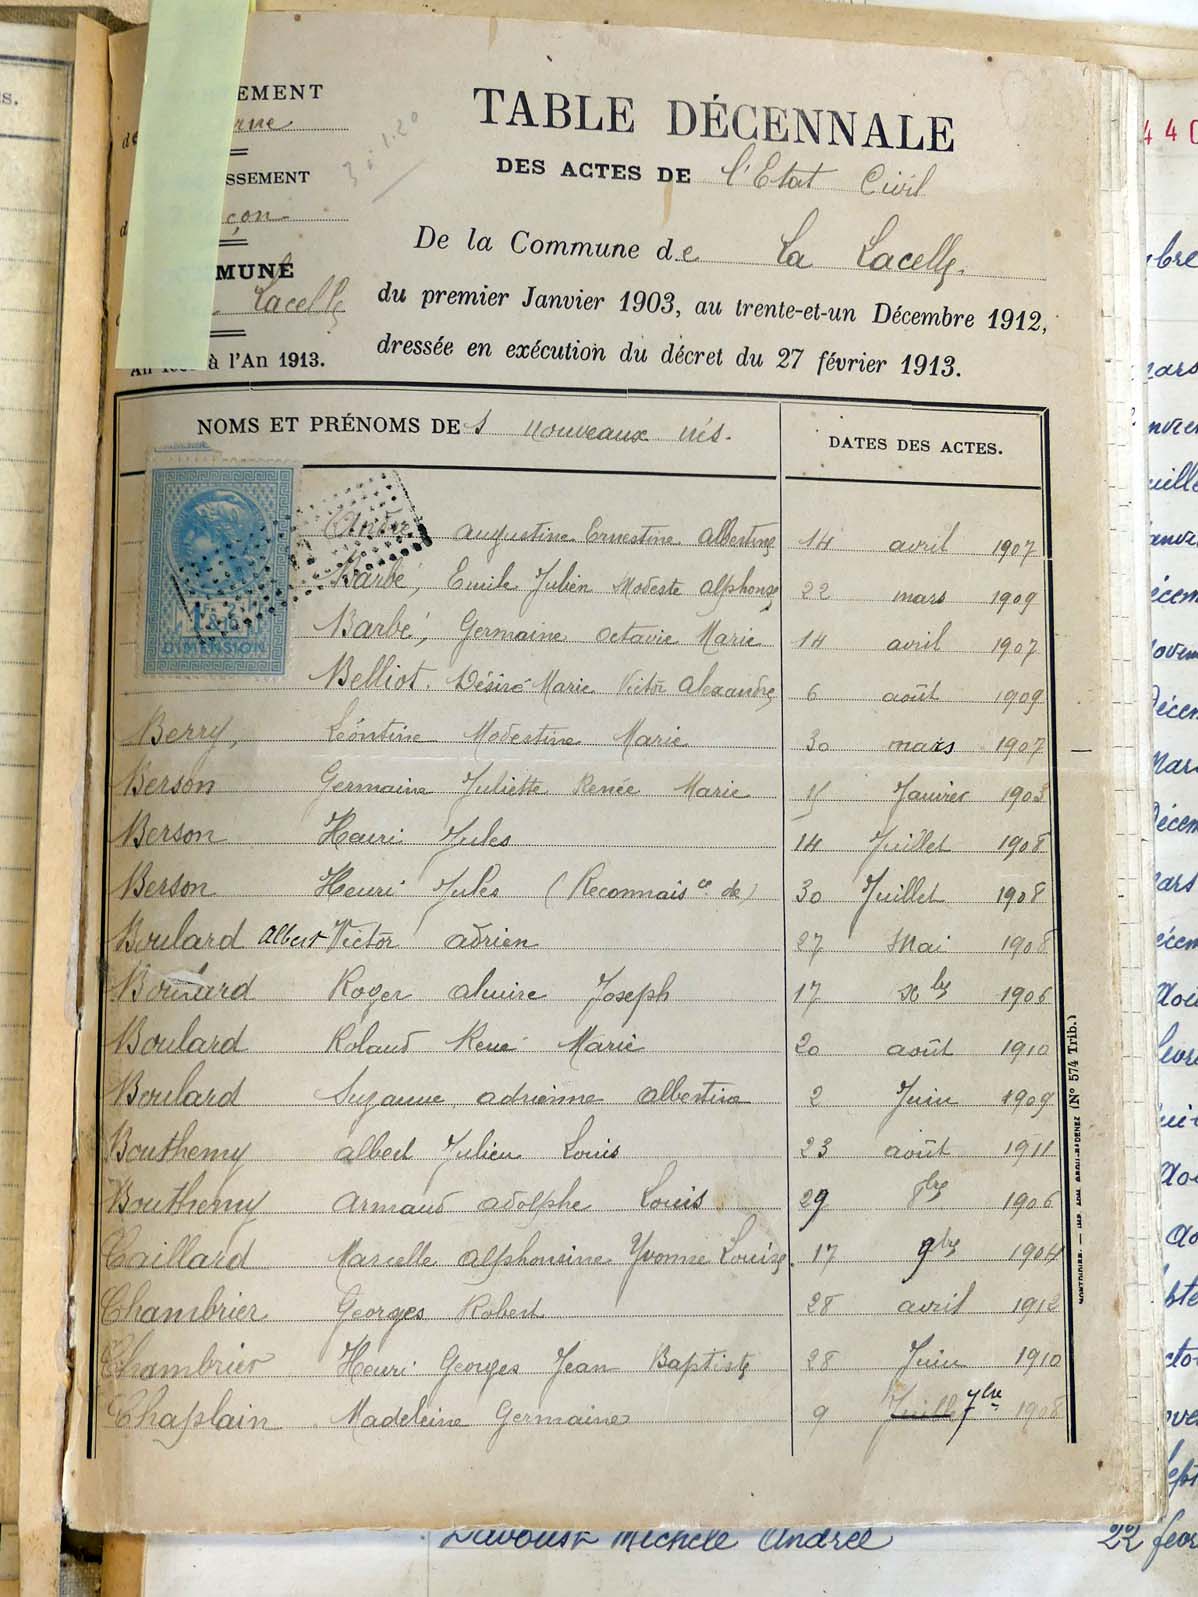 EMENT
rne
SSEMENT
çon
MUNE
Lacelle
à l'An 1913.
3 à 1.20
TABLE DÉCENNALE
DES ACTES DE l'Etat Civil
De la Commune de La Lacelle.
du premier Janvier 1903, au trente-et-un Décembre 1912,
dressée en exécution du décret du 27 février 1913.
NOMS ET PRÉNOMS DES nouveaux nés. DATES DES ACTES.
DIMENSION
André Augustine Ernestine Albertine 14 avril 1907
Barbé, Emile Julien Modeste Alphonse 22 mars 1909
Barbé, Germaine Octavie Marie 14 avril 1907
Belliot. Désiré Marie Victor Alexandre 6 août 1909
Berry, Léontine Modestine Marie 30 mars 1907
Berson Germaine Juliette Renée Marie Janvier 1903
Berson Henri Jules 14 Juillet 1908
Berson Henri Jules (Reconnais ce de) 30 Juillet 1908
Boulard Albert Victor Adrien 27 Mai 1908
Boulard Roger Joseph 17 Xbre 1906
Boulard Roland René Marie 20 août 1910
Boulard Suzanne Adrienne Albertine 2 Juin 1909
Bouthemy Albert Julien Louis 23 août 1911
Bouthemy Armand Adolphe Louis 29 8bre 1906
Caillard Marcelle Alphonsine Yvonne Louise. 17 9bre 1904
Chambrier Georges Robert 28 avril 1912
Chambrier Henri Georges Jean Baptiste 28 Juin 1910
Chaplain Madeleine Germaine 9 Juillet 7bre 1908
(No 574 Trib.)
Davoust Michèle Andrée 22 fevr